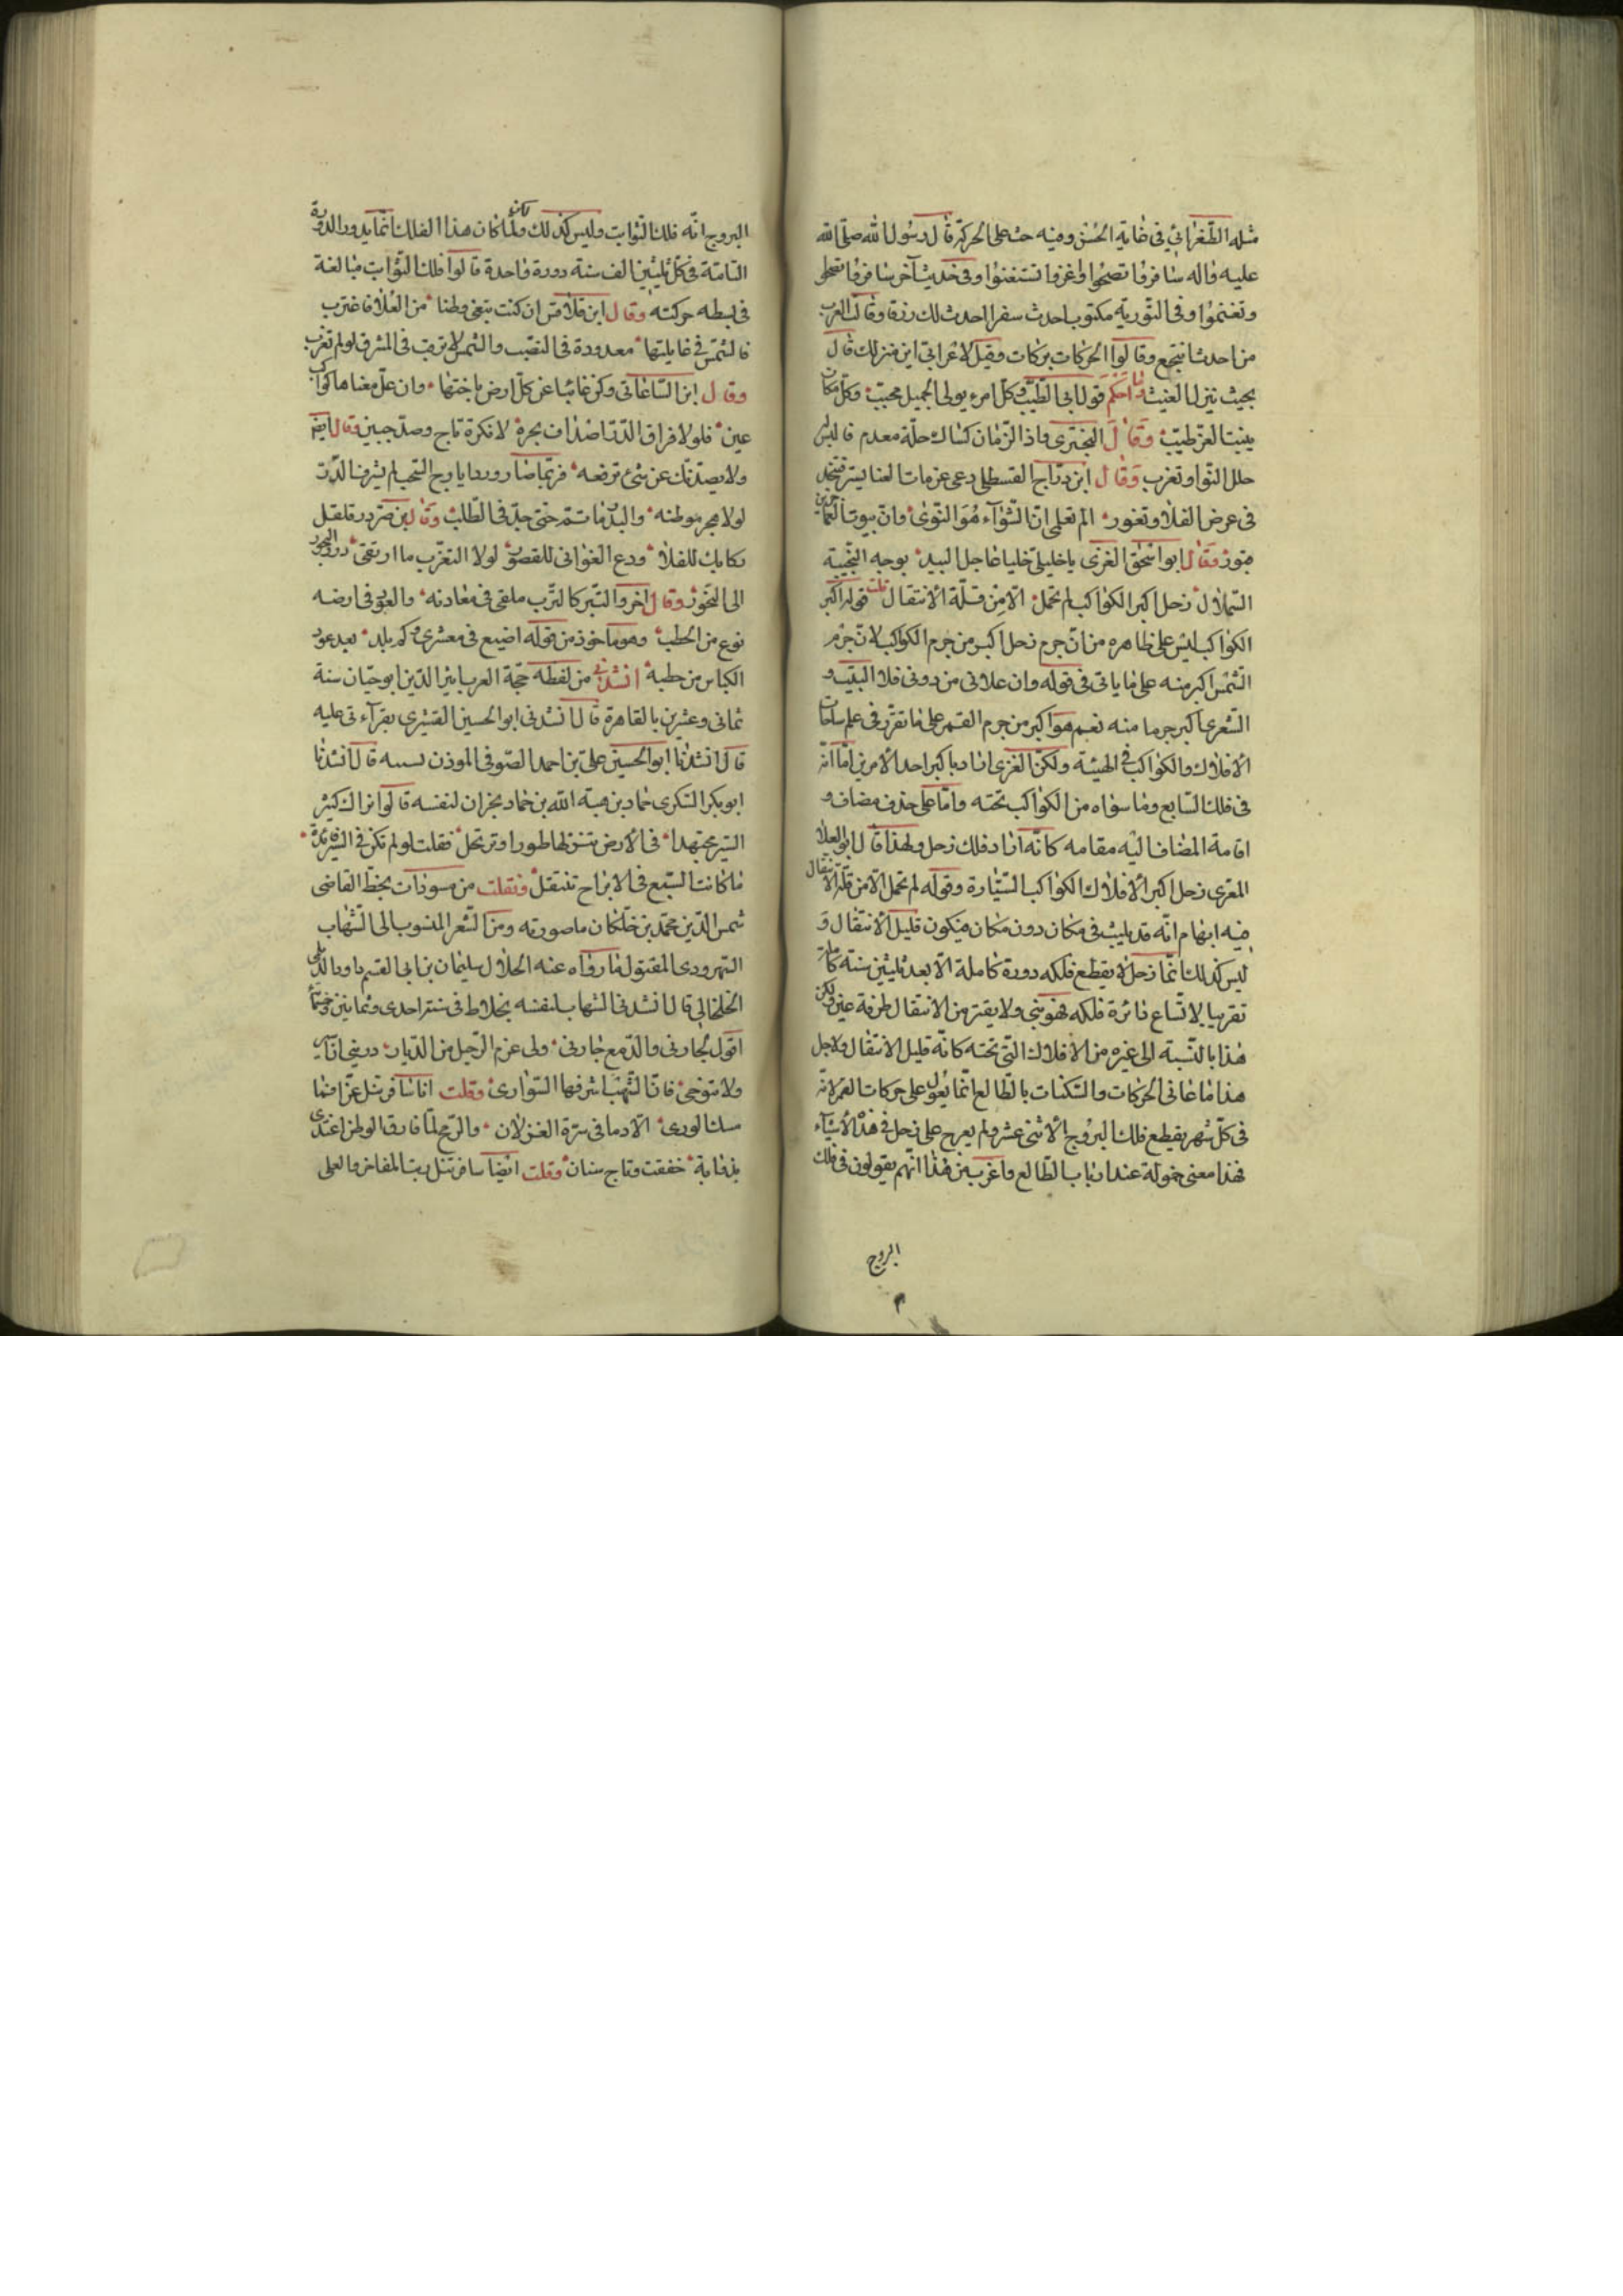 مثله الطغرائي في غاية الحسن وفيه حث على الحركة قال رسول الله صلى الله
عليه واله سافروا تصحوا واغزوا تستغنوا وفى حديث آخر سافروا تصحوا
وتغنموا وفى التورية مكتوب احدث سفرا احدث لك رزقا وقالت العرب
من اجدب انتجع وقالوا الحركات بركات وقيل لاعرابى اين منزلك قال
بحيث ينزل الغيث وما احكم قول ابى الطيب وكل امرء يولى الجميل محبب وكل مكان
ينبت العز طيب وقال البحترى واذا الزمان كساك حلة معدم فالبس
حلل النوا وتغرب وقال ابن دراج القسطلى دعى عزمات
فى عرض الفلا وتغور الم تعلمى ان الثوآء هو التوى وان بيوت العاجزين
قبور وقال ابو اسحق الغزى يا خليلى خليا عاجل البيد بوجه النجيبة
الشملال زحل اكبر الكواكب لم يخمل الا من قلة الانتقال قلت قوله اكبر
الكواكب ليس على ظاهره من ان جرم زحل اكبر من جرم الكواكب لان جرم
الشمس اكبر منه على ما ياتى فى قوله وان علانى من دونى فلا البيت و
الشعرى اكبر جرما منه نعم هو اكبر من جرم القمر على ما تقرر فى علم
الافلاك والكواكب فى الهيئة ولكن الغزى اراد باكبر احد الامرين اما انه
فى فلك السابع وما سواه من الكواكب تحته واما على حذف مضاف و
اقامة المضاف اليه مقامه كانه اراد فلك زحل ولهذا قال ابو العلا
المعرى زحل اكبر الافلاك الكواكب السيارة وقوله لم يخمل الا من قلة الانتقال
فيه ابهام انه قد يلبث فى مكان دون مكان فيكون قليل الانتقال و
ليس كذلك انما زحل لا يقطع فلكه دورة كاملة الا بعد ثليثين سنة كاملة
تقريبا لاتساع دائرة فلكه فهو ولا يفتر من الانتقال طرفة عين لكن
هذا بالنسبة الى غيره من الافلاك التى تحته كانه قليل الانتقال ولاجل
هذا ما عانى الحركات والسكنات بالطالع انما يعول على حركات القمر لانه
فى كل شهر يقطع فلك البروج الاثنى عشر ولم يعرج على زحل فى هذه الاشيآء
فهذا معنى خموله عند ارباب الطالع واغرب من هذا انهم يقولون فى فلك
البروج
البروج انه فلك الثوابت وليس كذلك ولما كان هذا الفلك انما يدور الدورة
التامة فى كل ثليثين الف سنة دورة واحدة قالوا فلك الثوابت مبالغة
فى بسطه حركته وقال ابن قلاقس ان كنت تبغى وطنا من العلا فاغترب
فالشمس فى غايتها معدودة فى النصب والشمس لا ترقب فى المشرق لو لم تغرب
وقال ابن الساعاتى وكن غائبا عن كل ارض باختها وان عل مغناها كواكب
عين فلولا فراق الدر اصداف بحره لا نكرة تاج وصد جبين وقال ايضا
ولا يصدنك عن شئ ترفعه فربما صار وردا ياروح السحب لم يشرف الدر
لولا هجر موطنه والبدر ما تم حتى جد فى الطلب وقال ابن صردر قلقل
ركابك للفلا ودع الغوانى للقصور لولا التغرب ما ارتقى درر البحور
الى النحور وقال آخر والتبر كالترب ملقى فى معادنه والعود فى ارضه
نوع من الحطب وهو ماخوذ من قوله اضيع فى معشرى وكم بلد يعد عود
الكبا من حطبه انشدنى من لفظه حجة العرب اثير الدين ابو حيان سنة
ثمانى وعشرين بالقاهرة قال انشدنى ابو الحسين القشيرى بقرآءتى عليه
قال انشدنا ابو الحسين على بن احمد الصوفى الموذن قال انشدنا
ابو بكر السكرى حماد بن هبة الله بن حماد بحران لنفسه قالوا نراك كثير
السير مجتهدا فى الارض تنزلها طورا وترتحل فقلت لو لم يكن فى السير فايدة
ما كانت السبع فى الابراج تنتقل ونقلت من مسودات بخط القاضى
شمس الدين محمد بن خلكان ما صورته ومن الشعر المنسوب الى الشهاب
السهروردى المقتول ما رواه عنه الجلال سليمان بن ابى القسم داود الديلمى
الخلخالى قال انشدنى الشهاب لنفسه بخلاط فى سنة احدى وثمانين وخمسمائة
اقول لجارتى والدمع جارى ولى عزم الرحيل من الديار ذرينى ان اسير
ولا تنوحى فان الشهب اشرفها السوارى وقلت انا سافر تنل عزا فما
مسك الورى الا دما فى سرة الغزلان والرمح لما فارق الوطن اغتدى
بذوابة خفقت وتاج سنان وقلت ايضا سافر تنل رتب المفاخر والعلى